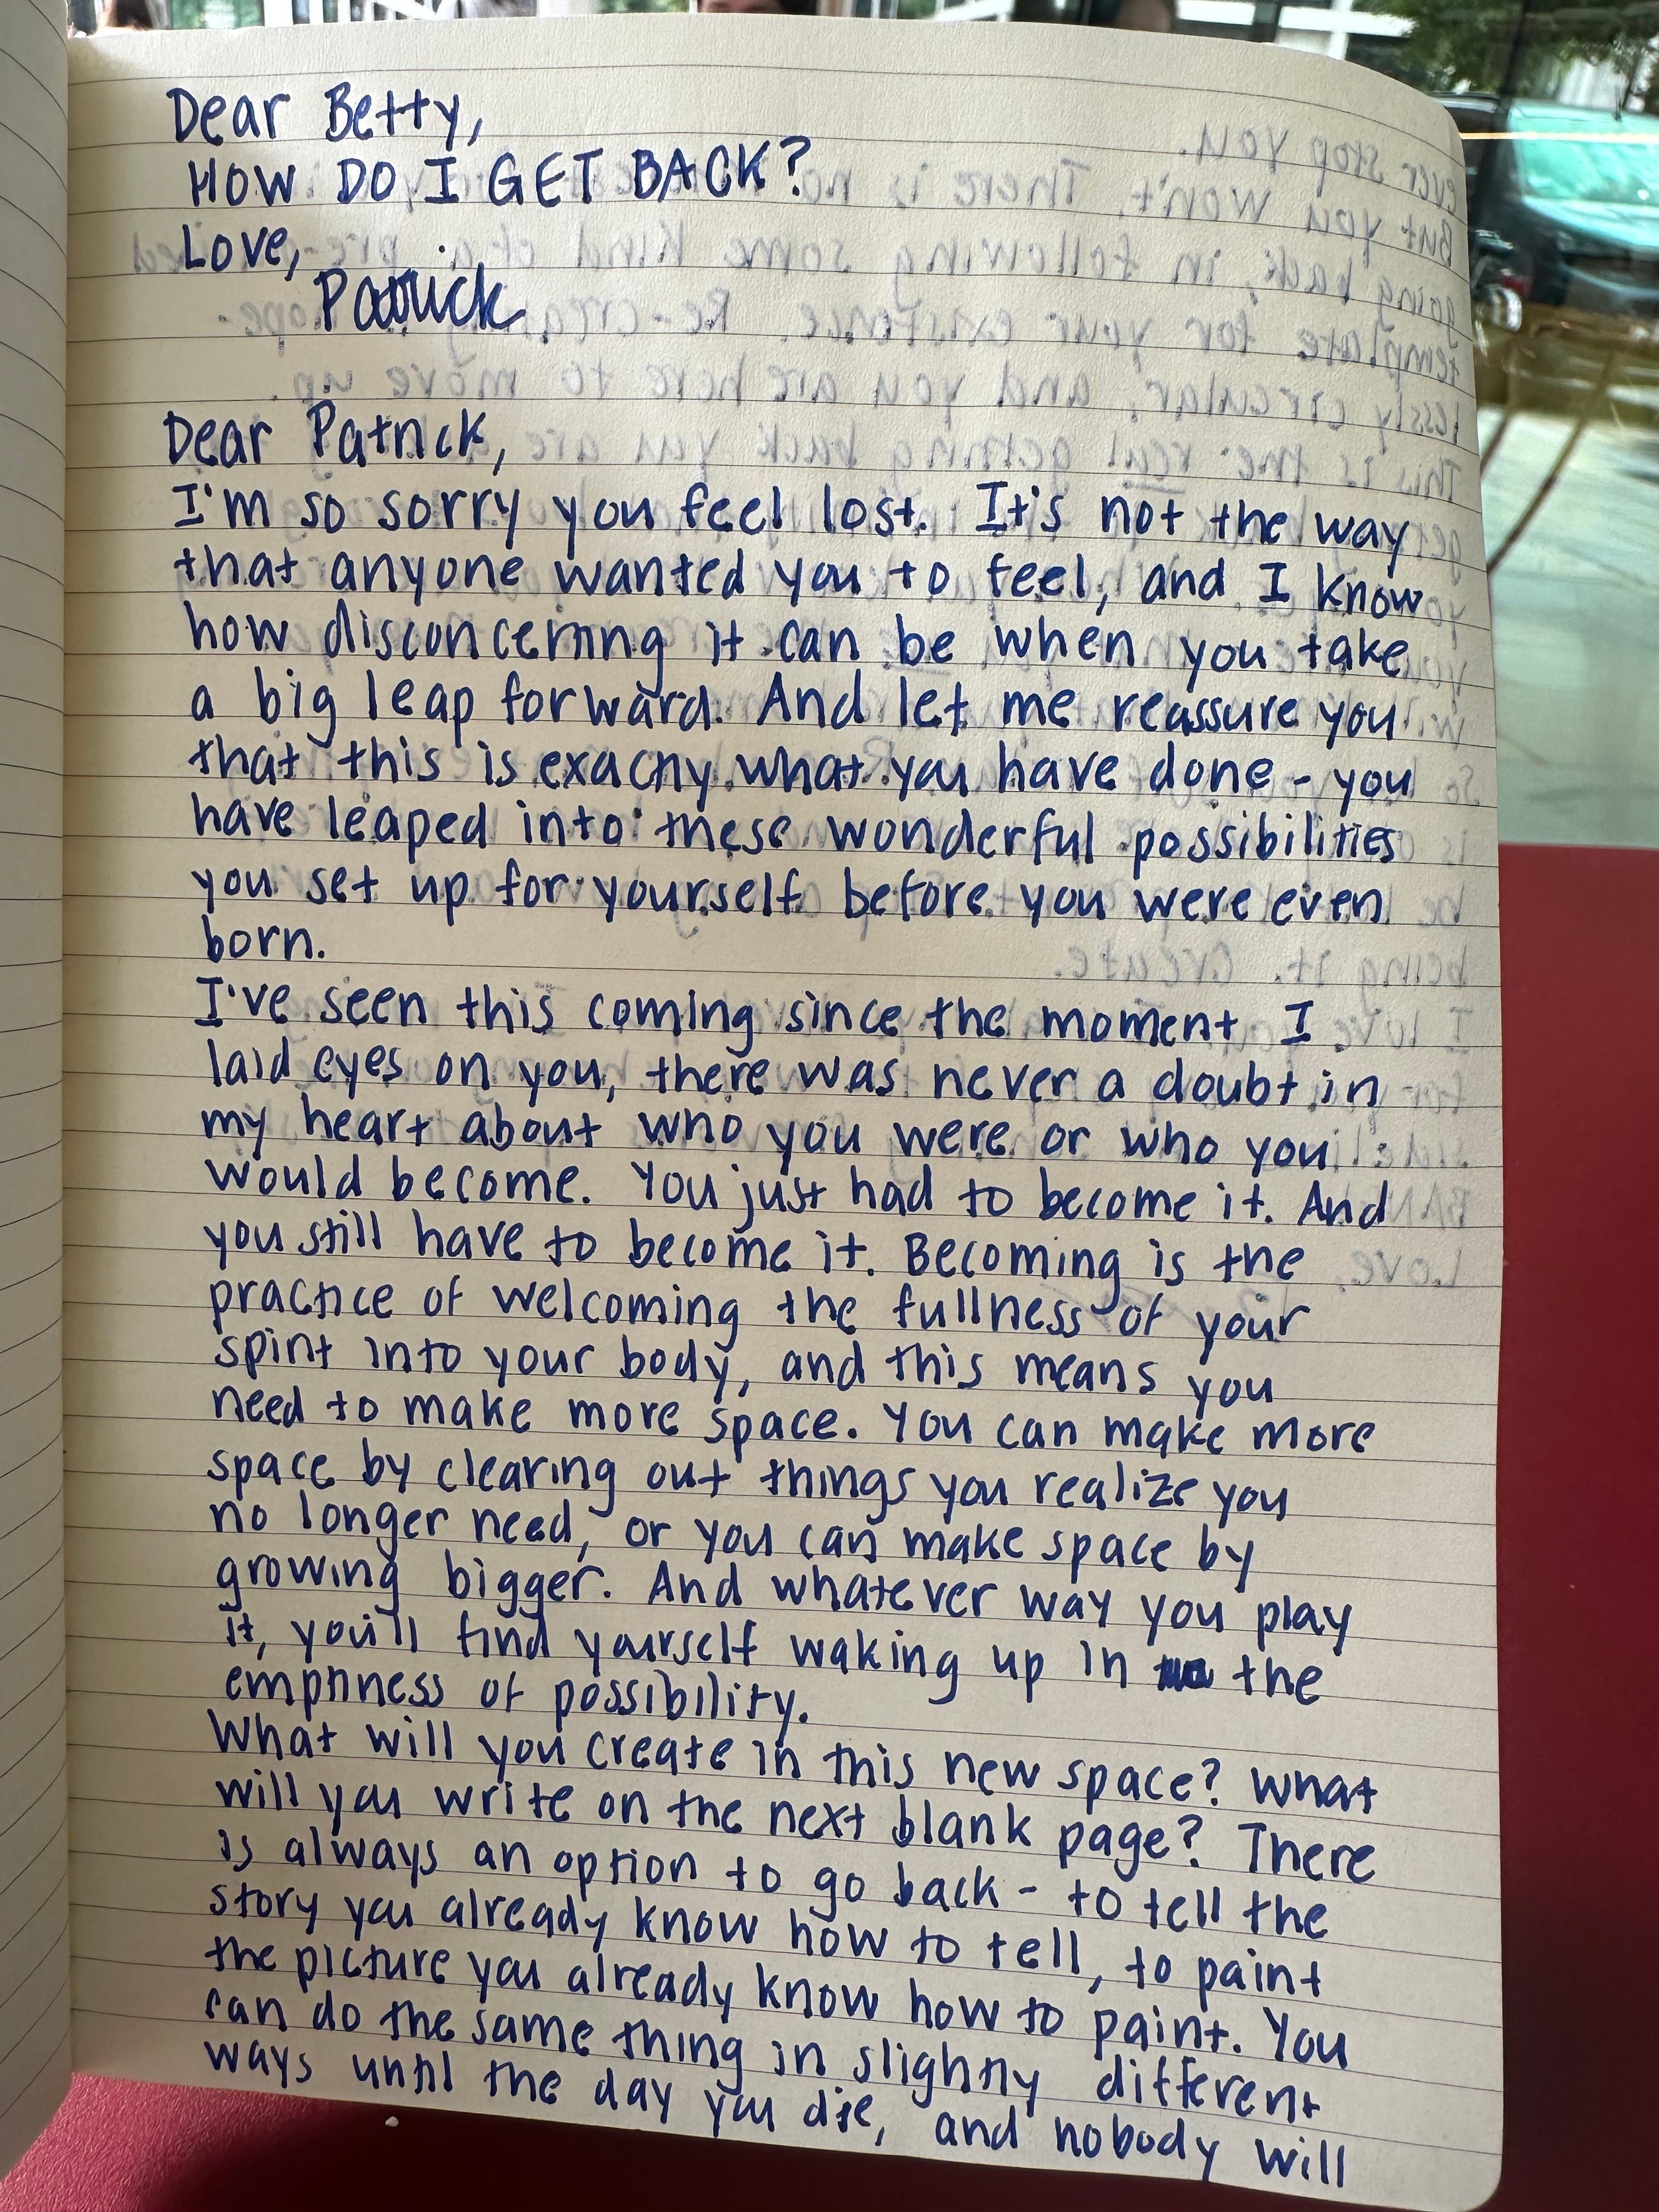 Dear Betty,
HOW DO I GET BACK?
Love,
Patrick
Dear Patrick,
I'm so sorry you feel lost. It's not the way
that anyone wanted you to feel, and I know
how disconcerting it can be when you take
a big leap forward. And let me reassure you
that this is exactly what you have done - you
have leaped into these wonderful possibilities
you set up for yourself before you were even
born.
I've seen this coming since the moment I
laid eyes on you, there was never a doubt in
my heart about who you were or who you
would become. You just had to become it. And
you still have to become it. Becoming is the
practice of welcoming the fullness of your
spirit into your body, and this means you
need to make more space. You can make more
space by clearing out things you realize you
no longer need, or you can make space by
growing bigger. And whatever way you play
it, you'll find yourself waking up in the
emptiness of possibility.
What will you create in this new space? What
will you write on the next blank page? There
is always an option to go back - to tell the
story you already know how to tell, to paint
the picture you already know how to paint. You
can do the same thing in slightly different
ways until the day you die, and nobody will
ever stop you.
But you won't. There is no
going back, in following some kind of a pre-
template for your existence. Re-creating is hope-
lessly circular, and you are here to move up.
This is the real getting back you are
being it. Create.
I love you
Love,